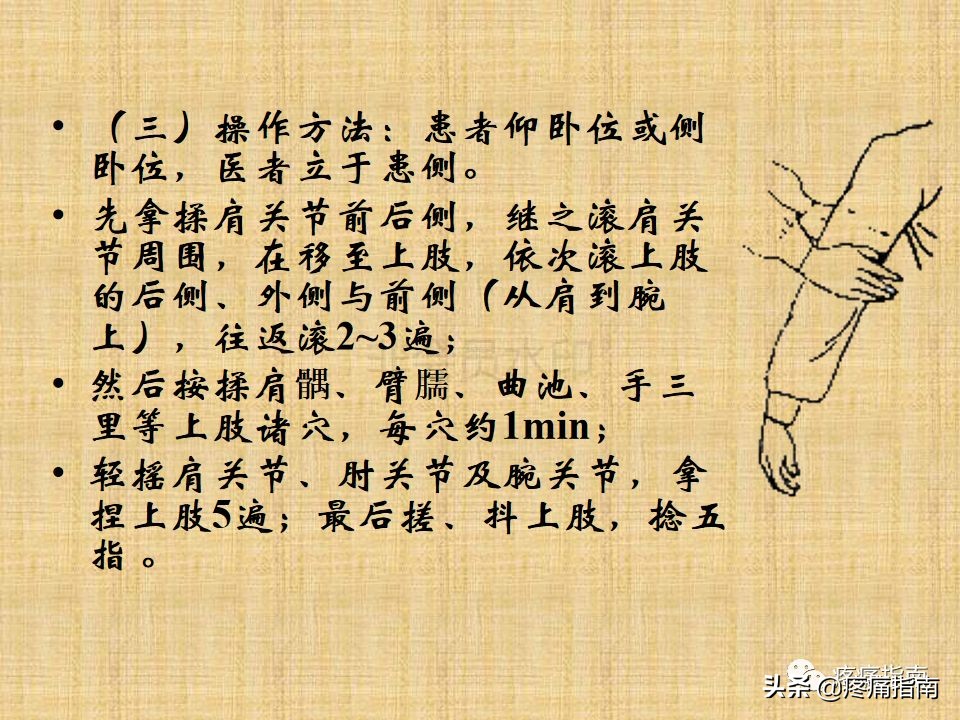 • （三）操作方法：患者仰卧位或侧
卧位，医者立于患侧。
• 先拿揉肩关节前后侧，继之滚肩关
节周围，在移至上肢，依次滚上肢
的后侧、外侧与前侧（从肩到腕
上），往返滚2~3遍；
• 然后按揉肩髃、臂臑、曲池、手三
里等上肢诸穴，每穴约1min；
• 轻摇肩关节、肘关节及腕关节，拿
捏上肢5遍；最后搓、抖上肢，捻五
指 。
疼痛指南
头条 @疼痛指南